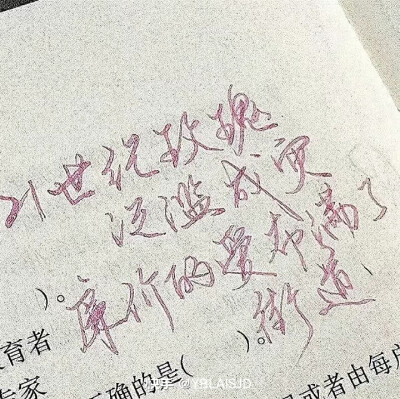 21世纪玫瑰
泛滥成灾
廉价的爱却满了
街道
)。
)。
教育者
专家
正确的是(
或者由每户
快手 @YBLAISJD